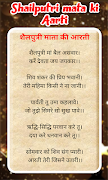 Shailputri mata ki
Aarti
शैलपुत्री माता की आरती
शैलपुत्री मां बैल असवार।
करें देवता जय जयकार।।
शिव शंकर की प्रिय भवानी।
तेरी महिमा किसी ने ना जानी।।
पार्वती तू उमा कहलावे।
जो तुझे सिमरे सो सुख पावे।।
ऋद्धि-सिद्धि परवान करे तू।
दया करे धनवान करे तू।।
सोमवार को शिव संग प्यारी।
आरती तेरी जिसने उतारी।।